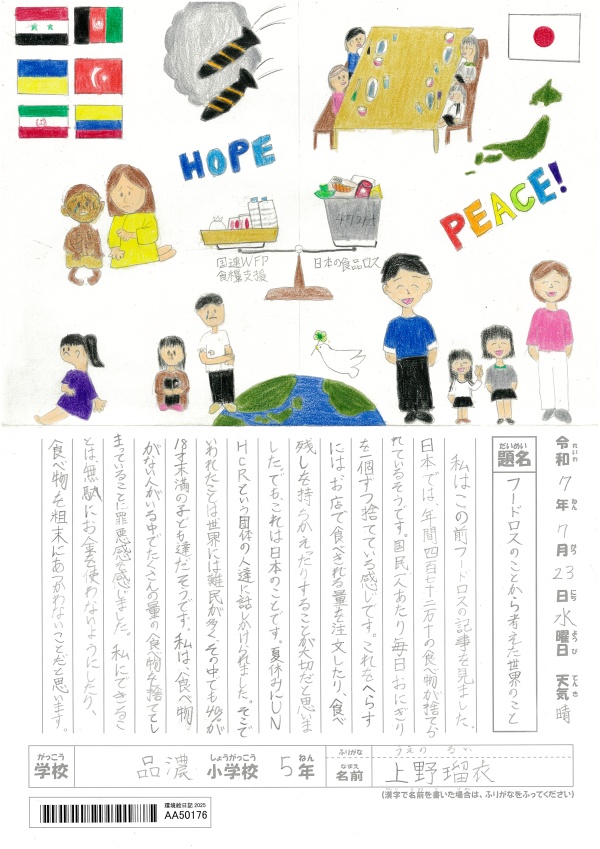 HOPE
PEACE!
国連WFP
食糧支援
日本の食品ロス
令和7年7月23日水曜日 天気 晴
れいわ ねん がつ にち ようび てんき
だいめい
題名
フードロスのことから考えた世界のこと
私はこの前フードロスの記事を見ました。
日本では、年間四百七十二万トの食べ物が捨てら
れているそうです。国民一人あたり毎日おにぎり
を一個ずつ捨てている感じです。これをへらす
にはお店で食べきれる量を注文したり、食べ
残しを持ちかえったりすることが大切だと思いま
した。でも、これは日本のことです。夏休みにUN
HCRという団体の人達に話しかけられました。そこで
いわれたことは世界には難民が多く、その中でも40%が
18才未満の子ども達だそうです。私は、食べ物
がない人がいる中でたくさんの量の食べ物を捨ててし
まっていることに罪悪感を感じました。私にできるこ
とは、無駄にお金を使わないようにしたり、
食べ物を粗末にあつかわないことだと思います。
がっこう
学校
品濃
しょうがっこう
小学校
5
ねん
年
ふりがな
うえの るい
なまえ
名前
上野瑠衣
(漢字で名前を書いた場合は、ふりがなをふってください)
環境絵日記 2025
AA50176